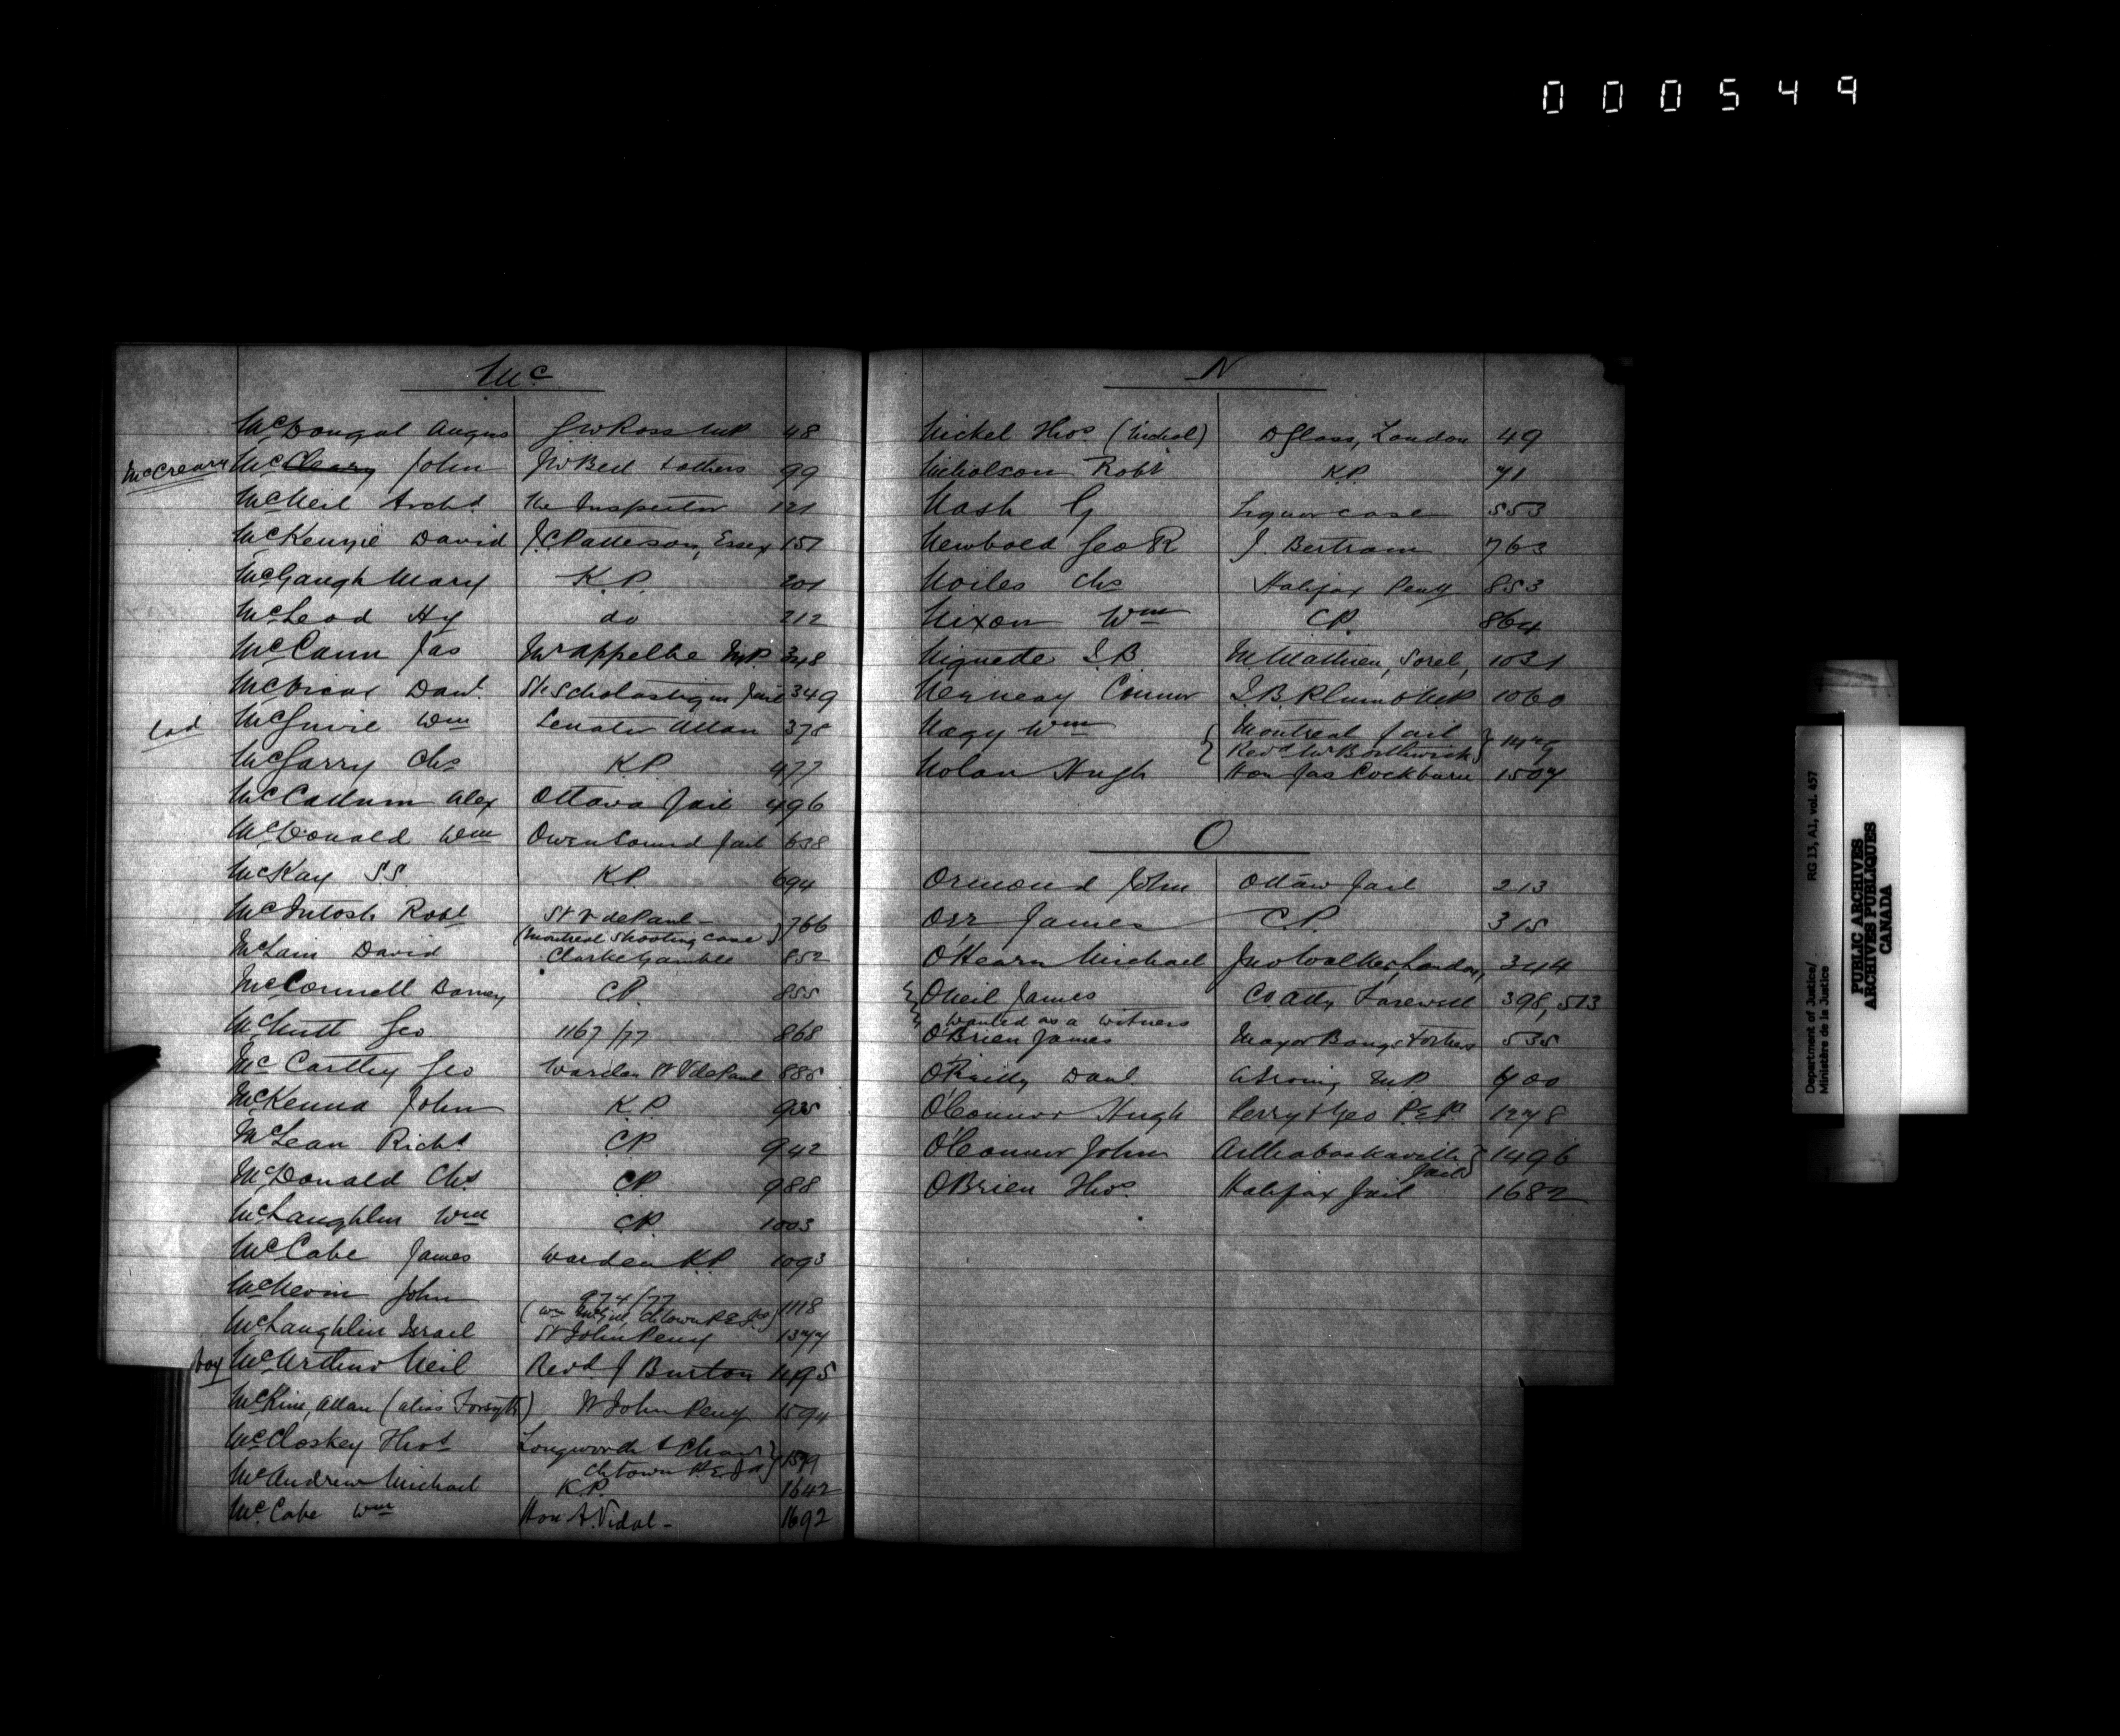 000549
Mc
McDougal Angus G W Ross MP 48
McCreary McCleary John J W Bell & others 99
McNeil Archd The Inspector 121
McKenzie David J.C. Patterson, Essex 151
McGaugh Mary K.P. 201
McLeod Hy do 212
McCann Jas Mr Appelbe M.P. 348
Danl St. Scholastique Jail 349
McGuire Wm Senator Allan 378
McGarry Chs K.P. 477
McCallum Alex Ottawa Jail 496
McDonald Wm Owen Sound Jail 638
McKay S.S. K.P. 694
McIntosh Robt St V de Paul - (Montreal Shooting Case) 766
McLain David Clarke Gamble 852
McConnell C.P. 855
McNutt Geo 1167/77 868
McCarthy Geo Warden St V de Paul 885
McKenna John K.P.
McLean Richd C.P. 942
McDonald Chs C.P. 988
McLaughlin Wm C.P. 1003
McCabe James Warden K.P. 1093
McNevin John 974/77
(Wm Ch'town P E Id) 1118
McLaughlin Israel St John Peny 1377
boy McArthur Neil Revd J Burton 1495
McKim, Allan (alias Forsyth) St John Peny 1594
McCloskey Thos Longworth &
Ch'town P.E.Id 1599
McAndrew Michael K.P. 1642
McCabe Wm Hon A. Vidal - 1692
N
Nickel Thos (Nichol) D Glass, London 49
Nicholson Robt K.P. 71
Nash G Liquor case 553
Newbold Geo R J. Bertram 763
Noiles Chs Halifax Peny 853
Nixon Wm C.P. 864
Niquette I.B. M. Mathieu, Sorel, 1031
Connor J.B. Plumb M.P. 1060
Nagy Wm Montreal Jail
Revd Mr Borthwick
Nolan Hugh Hon Jas Cockburn 1507
O
Ormond John Ottaw Jail 213
Orr James C.P. 315
O'Hearn Michael Jno Walker, London, 344
O'Neil James Co Atty Farewell 398, 513
Wanted as a witness
O'Brien James Mayor Bangs & others 535
O'Reilly Danl M.P. 700
O'Connor Hugh Perry & Geo P.E.I. 1278
O'Connor John Arthabaskaville Jail 1496
O'Brien Thos. Halifax Jail 1682
Department of Justice/ RG 13, A1, vol. 457
Ministère de la Justice
PUBLIC ARCHIVES
ARCHIVES PUBLIQUES
CANADA